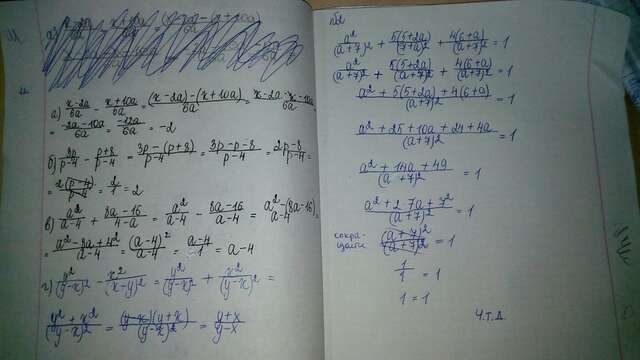 а) x-2a/6a - x+10a/6a = (x-2a)-(x+10a)/6a = x-2a-x-10a/6a =
= -2a-10a/6a = -12a/6a = -2
б) 3p/p-4 - p+8/p-4 = 3p-(p+8)/p-4 = 3p-p-8/p-4 = 2p-8/p-4 =
= 2(p-4)/p-4 = 2/1 = 2
в) a²/a-4 + 8a-16/4-a = a²/a-4 - 8a-16/a-4 = a²-(8a-16)/a-4 =
= a²-8a+4²/a-4 = (a-4)²/a-4 = a-4/1 = a-4
г) y²/(y-x)² - x²/(x-y)² = y²/(y-x)² + x²/(y-x)² =
y²+x²/(y-x)² = (y-x)(y+x)/(y-x)² = y+x/y-x
№2
a²/(a+7)² + 5(5+2a)/(7+a)² + 4(6+a)/(a+7)² = 1
a²/(a+7)² + 5(5+2a)/(a+7)² + 4(6+a)/(a+7)² = 1
a²+5(5+2a)+4(6+a)/(a+7)² = 1
a²+25+10a+24+4a/(a+7)² = 1
a²+14a+49/(a+7)² = 1
a²+2·7a+7²/(a+7)² = 1
сокра-
щаем (a+7)²/(a+7)² = 1
1/1 = 1
1 = 1
Ч.Т.Д.